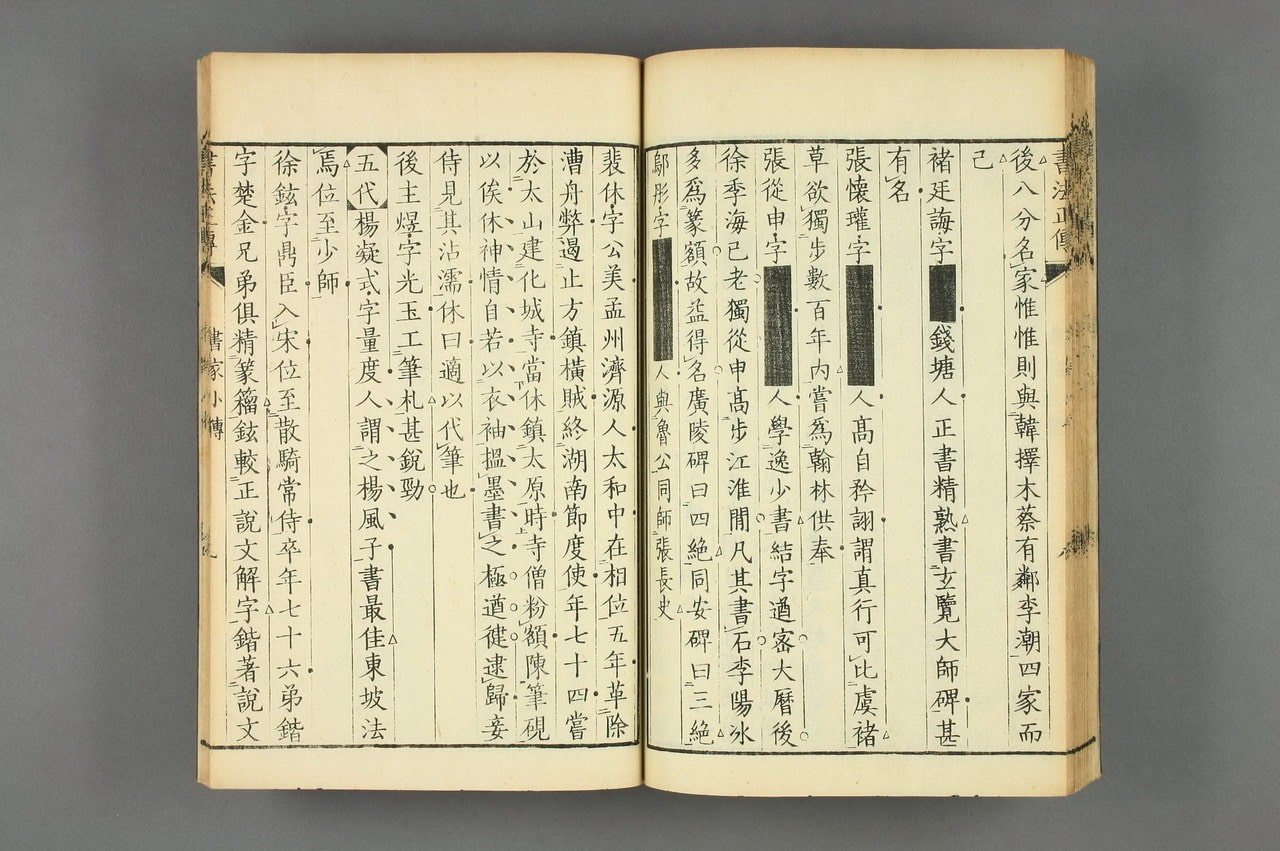 後八分名家惟惟則與韓擇木蔡有鄰李潮四家而
已
褚廷誨字人錢塘人正書精熟書玄覽大師碑甚
有名
張懷瓘字人高自矜詡謂真行可比虞褚
草欲獨步數百年內嘗爲翰林供奉
張從申字人學逸少書結字遒密大曆後
徐季海已老獨從申高步江淮閒凡其書石李陽冰
多爲篆額故益得名廣陵碑曰四絕同安碑曰三絕
鄔彤字人與魯公同師張長史
裴休字公美孟州濟源人太和中在相位五年革除
漕舟弊遏止方鎮橫賊終湖南節度使年七十四嘗
於太山建化城寺當休鎮太原時寺僧粉額陳筆硯
以俟休神情自若以衣袖搵墨書之極遒健逮歸妾
侍見其沾濡休曰適以代筆也
後主煜字光玉工筆札甚銳勁
五代楊凝式字量度人謂之楊風子書最佳東坡法
焉位至少師
徐鉉字鼎臣入宋位至散騎常侍卒年七十六弟鍇
字楚金兄弟俱精篆籀鉉較正說文解字鍇著說文
書法正傳
書家小傳